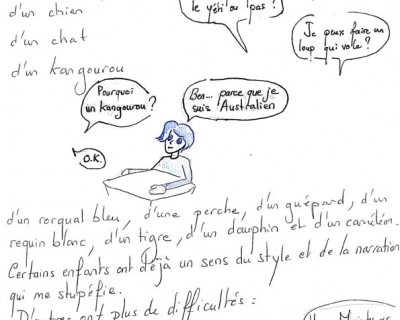 d'un chien
le yéti ou pas ?
d'un chat
Je peux faire un
loup qui vole ?
d'un kangourou
Pourquoi
un kangourou ?
Ben... parce que je
suis Australien
O.K.
d'un rorqual bleu, d'une perche, d'un guépard, d'un
requin blanc, d'un tigre, d'un dauphin et d'un caméléon.
Certains enfants ont déjà un sens du style et de la narration
qui me stupéfie.
D'autres ont plus de difficultés :